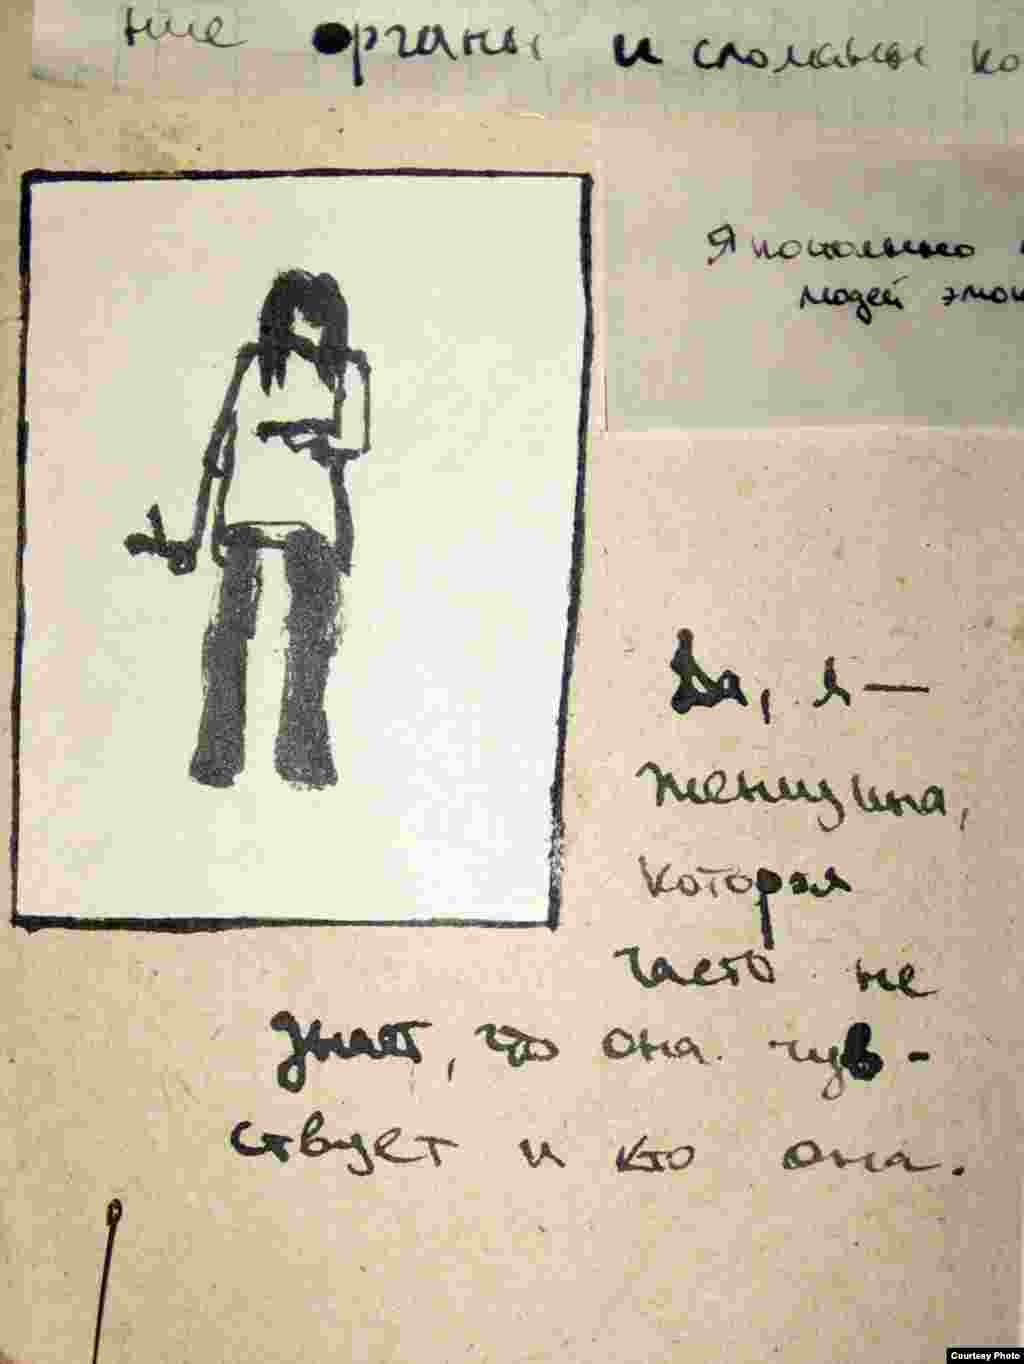 ние органы и сломаны ко
Я поскольку
людей эмо
Да, я —
женщина,
которая
часто не
знает, что она чув-
ствует и кто она.
Courtesy Photo